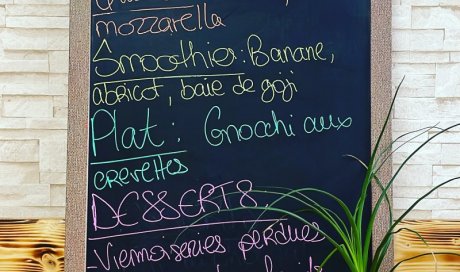 mozzarella
Smoothie: Banane,
abricot, baie de goji
Plat : Gnocchi aux
crevettes
DESSERTS
-Viennoiseries perdues